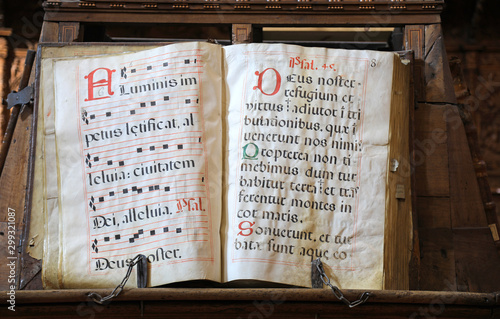 A
Luminis im
petus lętificat, al
leluia: ciuitatem
Dei, alleluia, Psal.
Deus noster.
Psal. 45. 8
DEus noster
refugium et
virtus: adiutor ĩ tri
bulationibus, quæ ĩ
uenerunt nos nimi.
Propterea non ti
mebimus dum tur
babitur terra: et trãs
ferentur montes in
cor maris.
Sonuerunt, et tur
batæ sunt aquę eo